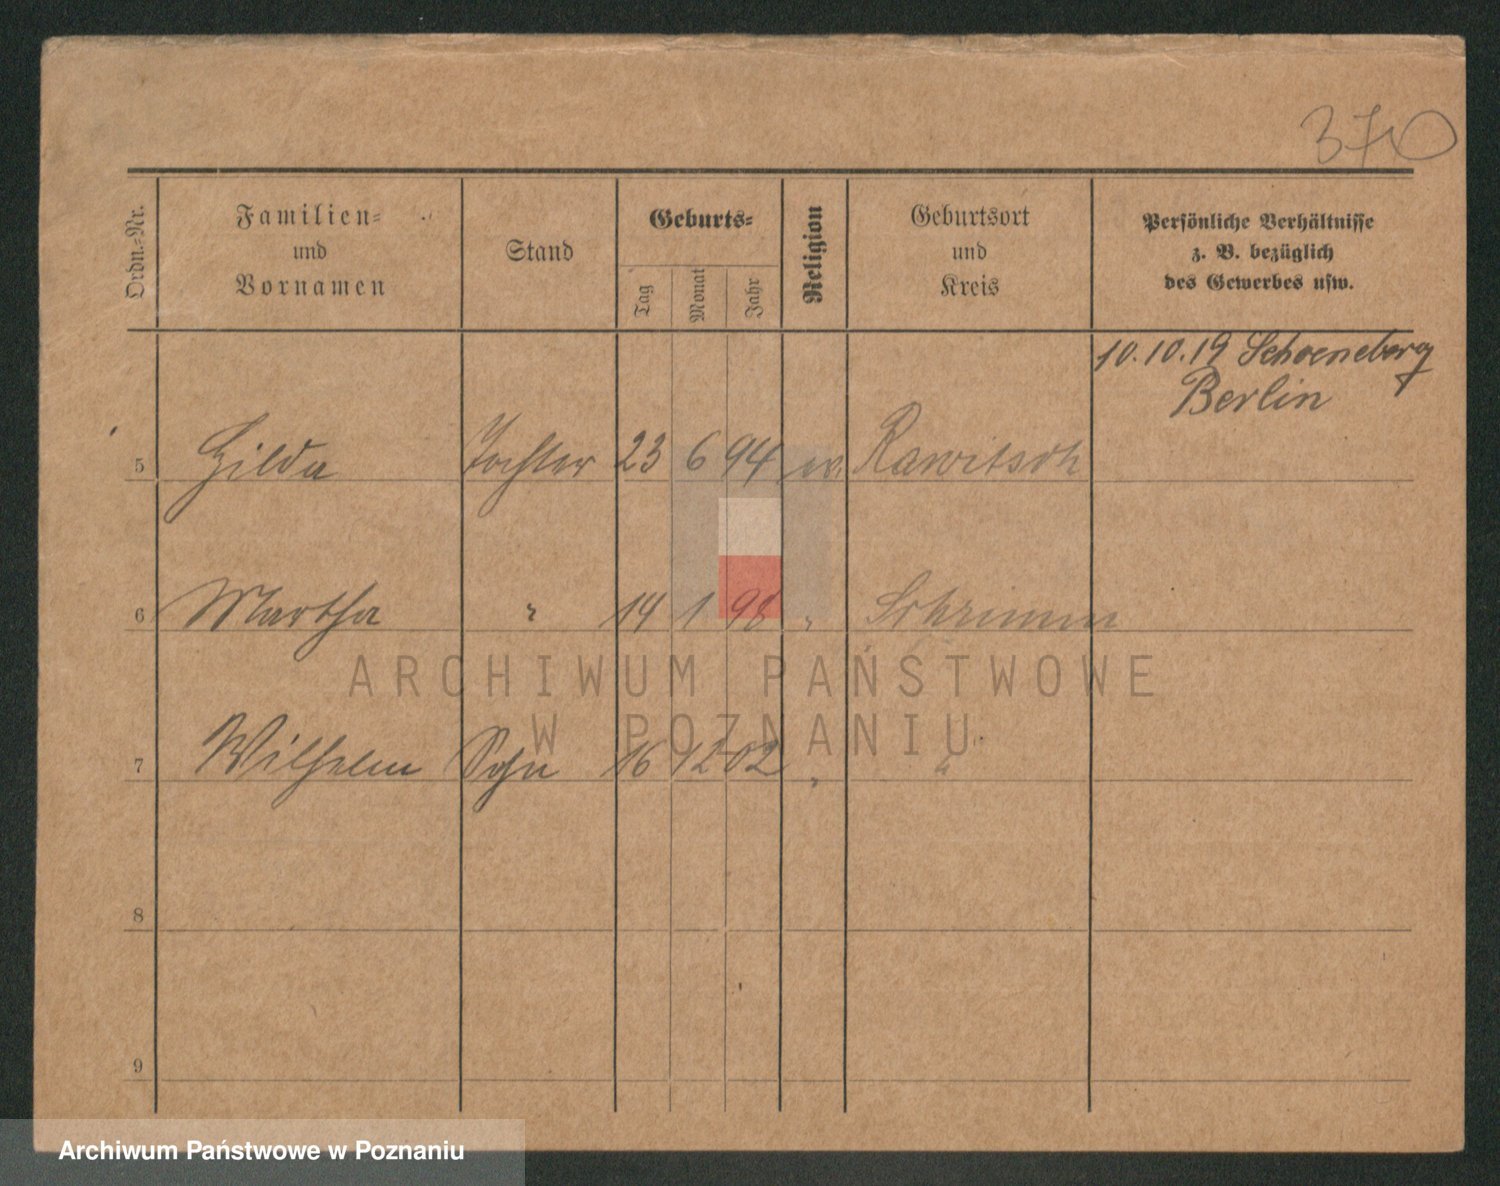 370
Ordn.-Nr.
Familien-
und
Vornamen
Stand
Geburts-
Tag
Monat
Jahr
Religion
Geburtsort
und
Kreis
Persönliche Verhältnisse
z. B. bezüglich
des Gewerbes usw.
10.10.19 Schoeneberg
Berlin
5 Hilda Tochter 23 6 94 ev. Rawitsch
6 Martha " 14 1 98 " Schrimm
ARCHIWUM PAŃSTWOWE
W POZNANIU
7 Wilhelm Sohn 16 12 02 " "
8
9
Archiwum Państwowe w Poznaniu